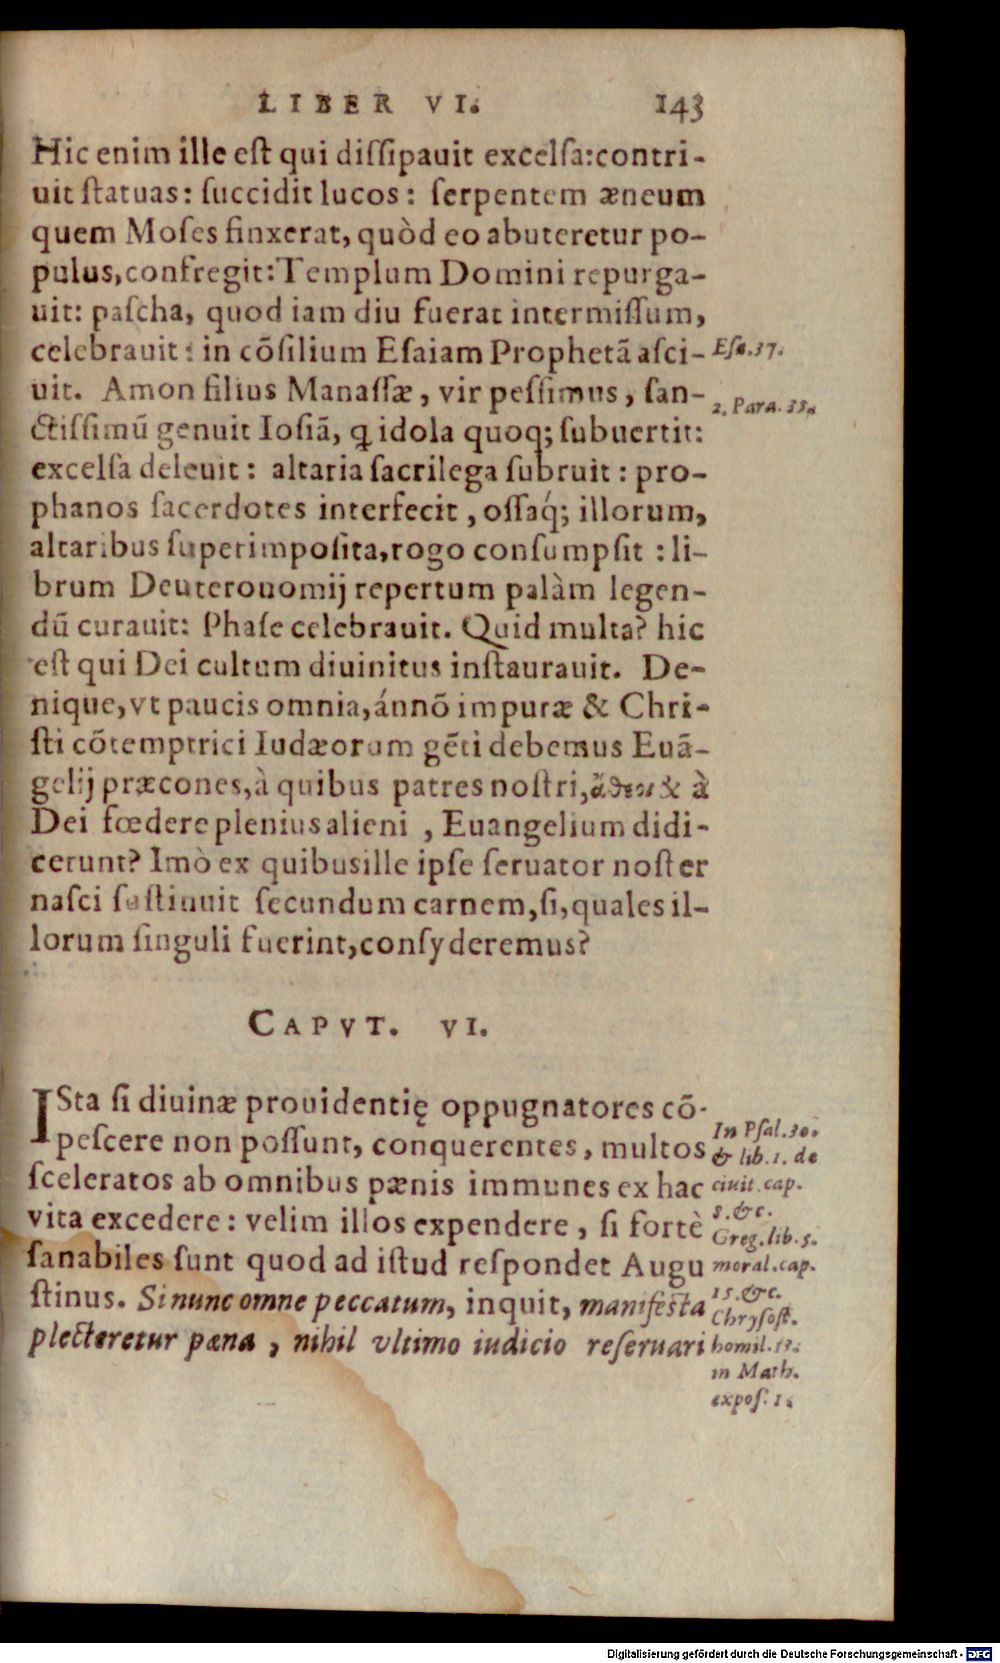 LIBER VI. 143
Hic enim ille est qui dissipauit excelsa:contri-
uit statuas: succidit lucos: serpentem æneum
quem Moses finxerat, quòd eo abuteretur po-
pulus, confregit: Templum Domini repurga-
uit: pascha, quod iam diu fuerat intermissum,
celebrauit: in cõsilium Esaiam Prophetã asci-
Esa.37.
uit. Amon filius Manassæ, vir pessimus, san-
2. Para. 35.
ctissimũ genuit Iosiã, q idola quoq; subuertit:
excelsa deleuit: altaria sacrilega subruit: pro-
phanos sacerdotes interfecit, ossaq́; illorum,
altaribus superimposita, rogo consumpsit: li-
brum Deuteronomij repertum palàm legen-
dũ curauit: Phase celebrauit. Quid multa? hic
est qui Dei cultum diuinitus instaurauit. De-
nique, vt paucis omnia, ánnõ impuræ & Chri-
sti cõtemptrici Iudæorum gẽti debemus Euã-
gelij præcones, à quibus patres nostri, ἄθεοι & à
Dei fœdere plenius alieni, Euangelium didi-
cerunt? Imò ex quibus ille ipse seruator noster
nasci sustinuit secundum carnem, si, quales il-
lorum singuli fuerint, consyderemus?
CAPVT. VI.
ISta si diuinæ prouidentię oppugnatores cõ-
pescere non possunt, conquerentes, multos
sceleratos ab omnibus pænis immunes ex hac
vita excedere: velim illos expendere, si fortè
sanabiles sunt quod ad istud respondet Augu
stinus. Si nunc omne peccatum, inquit, manifesta
plecteretur pæna, nihil vltimo iudicio reseruari
In Psal.30.
& lib.1. de
ciuit. cap.
8. &c.
Greg. lib.5.
moral. cap.
15. &c.
Chrysost.
homil.13.
in Math.
expos. 1.
Digitalisierung gefördert durch die Deutsche Forschungsgemeinschaft - DFG